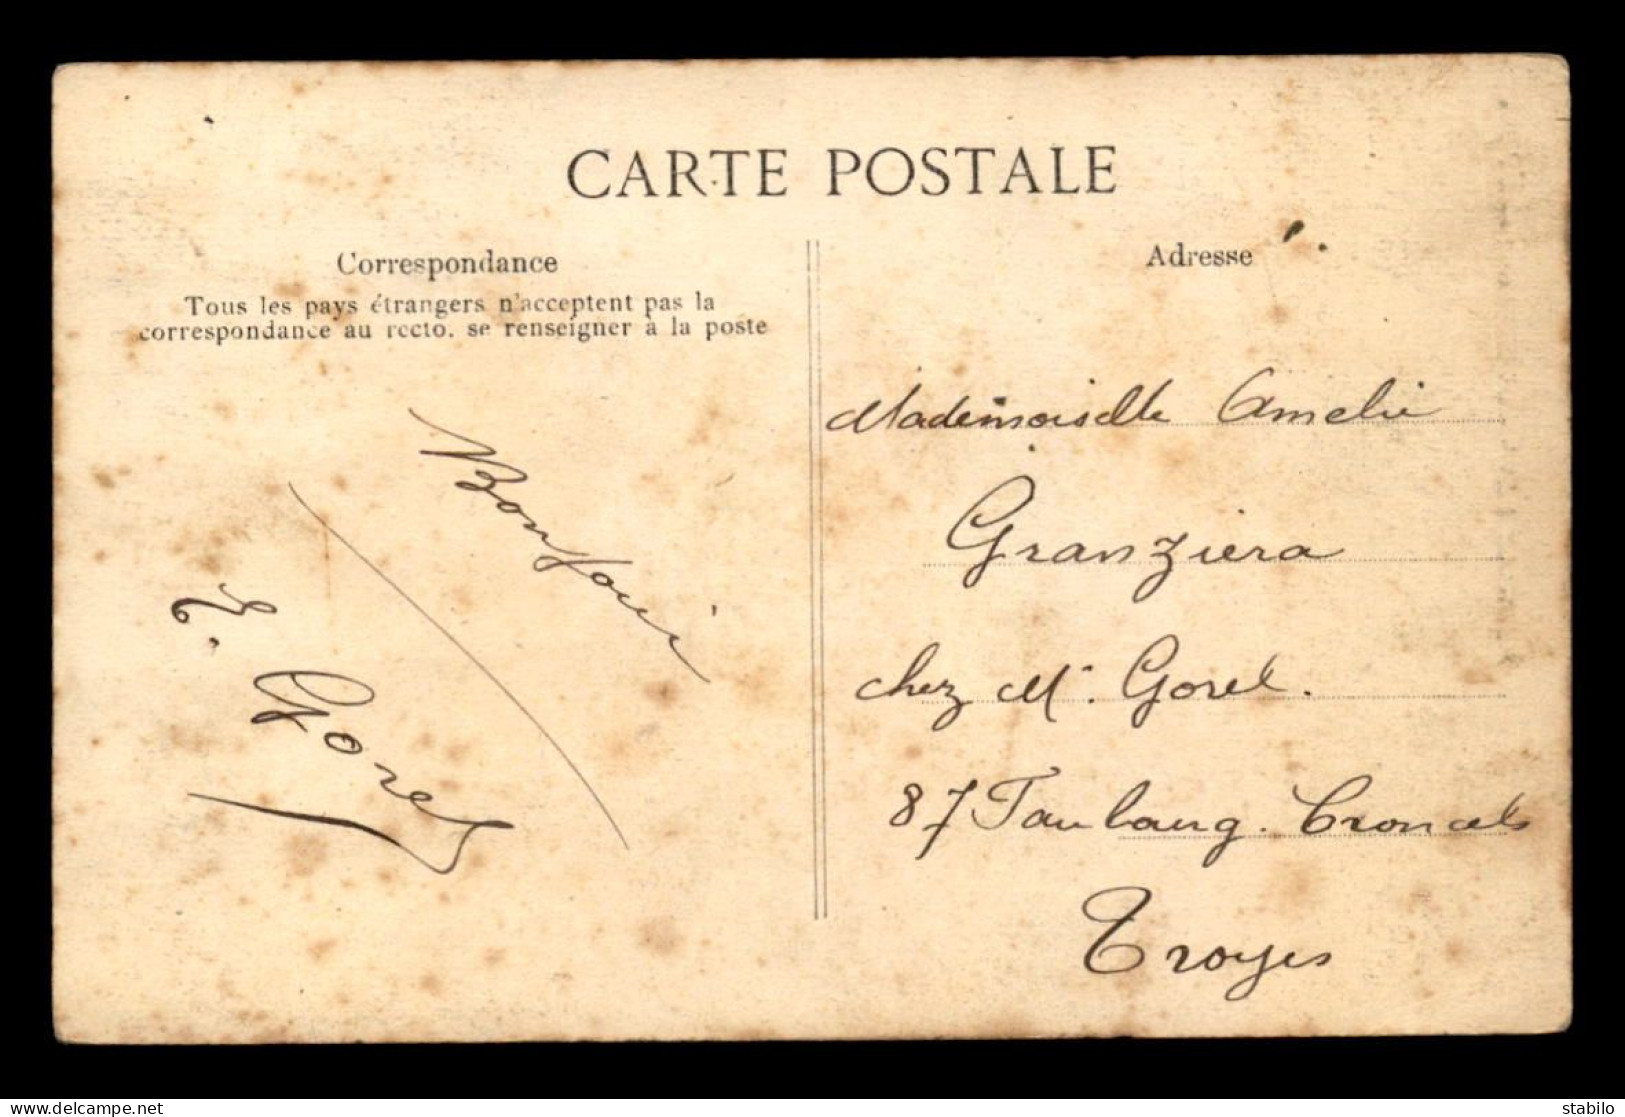 CARTE POSTALE
Correspondance
Tous les pays étrangers n'acceptent pas la
correspondance au recto. se renseigner à la poste
Bonjour
E. Goret
Adresse
Mademoiselle Amelie
Granziera
chez M. Goret.
87 Faubourg. Croncels
Troyes
stabilo
www.delcampe.net